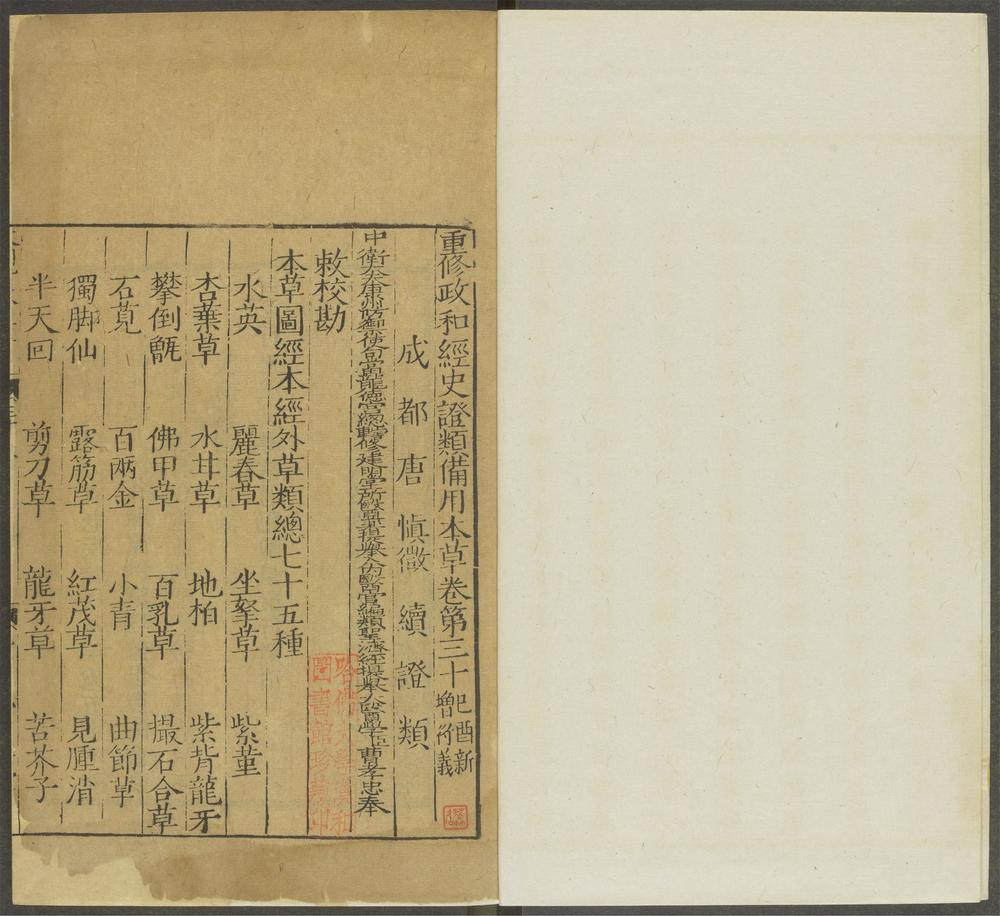 重修政和經史證類備用本草卷第三十 己酉新增衍義
成都唐愼微續證類
中衛大夫康州防禦使句當龍德宮總轄修建明堂所醫藥提舉入內醫官編類聖濟經提舉太醫學臣曹孝忠奉
敕校勘
本草圖經本經外草類總七十五種
水英 麗春草 坐拏草 紫堇
杏葉草 水甘草 地柏 紫背龍牙
攀倒甑 佛甲草 百乳草 撮石合草
石莧 百兩金 小青 曲節草
獨脚仙 露筋草 紅茂草 見腫消
半天回 剪刀草 龍牙草 苦芥子
哈佛大學漢和圖書館珍藏印